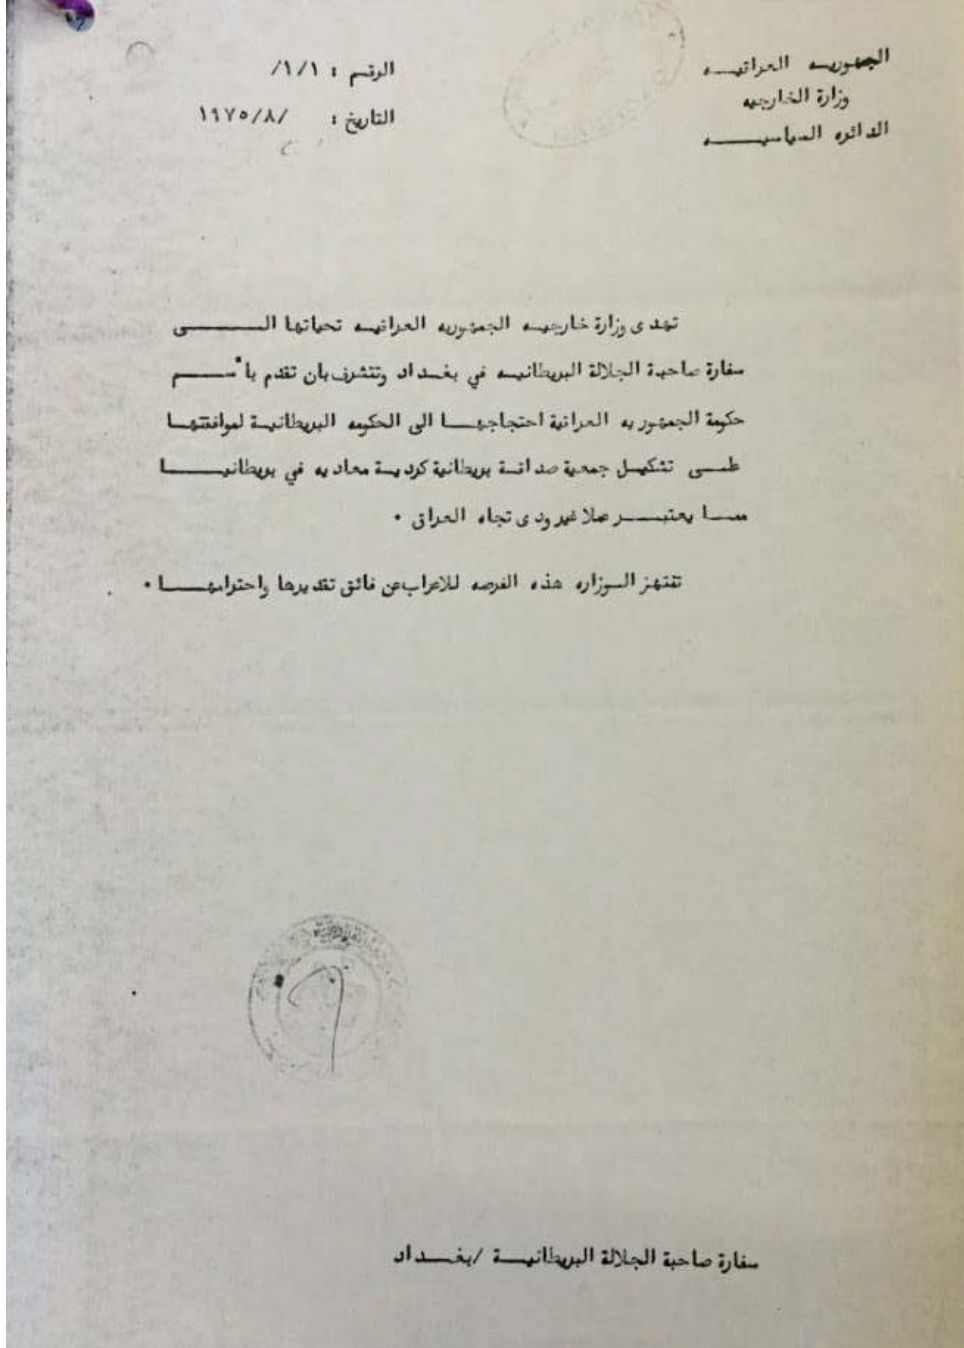 الجمهوريه العراقيه
وزارة الخارجيه
الدائره السياسيه
الرقم : ١/١/
التاريخ : /١٩٧٥/٨
تهدى وزارة خارجيه الجمهوريه العراقيه تحياتها الى
سفارة صاحبة الجلالة البريطانيه في بغداد وتتشرف بان تقدم بأسم
حكومة الجمهوريه العراقية احتجاجها الى الحكومه البريطانية لموافقتها
على تشكيل جمعية صداقة بريطانية كردية معاديه في بريطانيا
مما يعتبر عملا غير ودى تجاه العراق .
تنتهز الوزاره هذه الفرصه للاعراب عن فائق تقديرها واحترامها .
سفارة صاحبة الجلالة البريطانية / بغداد